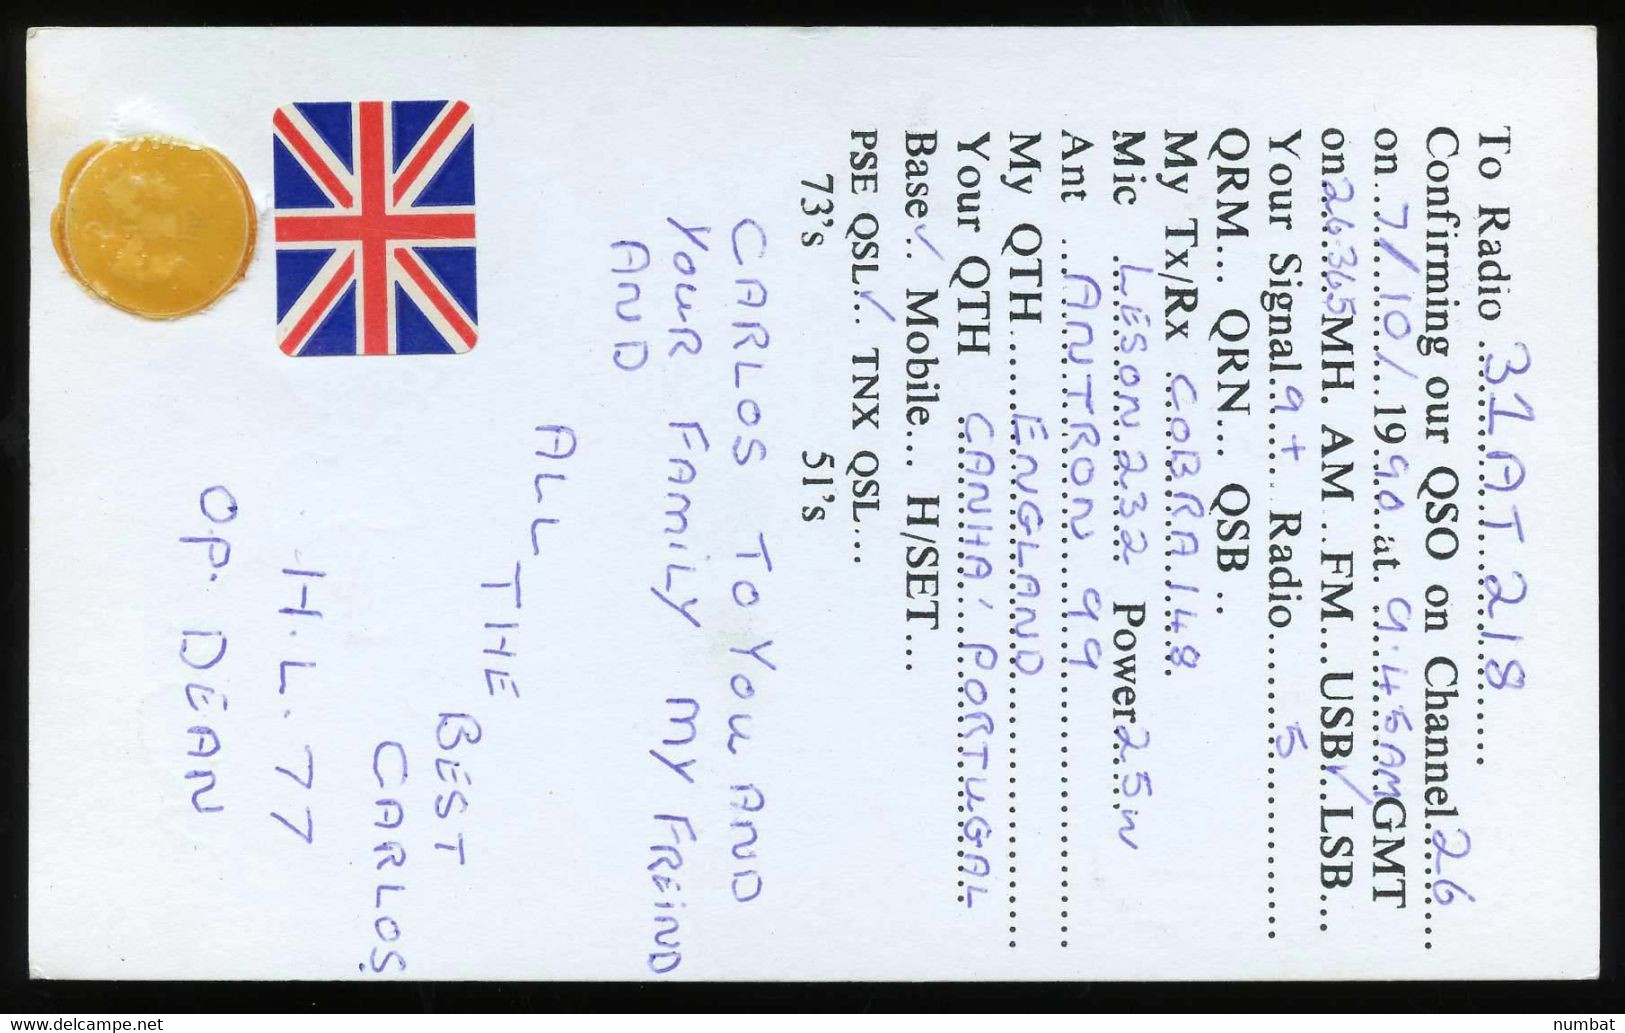 To Radio 31AT218
Confirming our QSO on Channel 26
on 7/10/ 1990 at 9.45AM GMT
on 26365 MH. AM.. FM... USB✓.. LSB...
Your Signal 9+ Radio 5
QRM... QRN... QSB ..
My Tx/Rx COBRA 148
Mic LESON 232 Power 25W
Ant ANTRON 99
My QTH ENGLAND
Your QTH CANHA' PORTUGAL
Base✓.. Mobile... H/SET...
PSE QSL✓.. TNX QSL...
73's 51's
CARLOS TO YOU AND
YOUR FAMILY MY FREIND
AND
ALL
THE
BEST
CARLOS
H.L.77
OP. DEAN
numbat